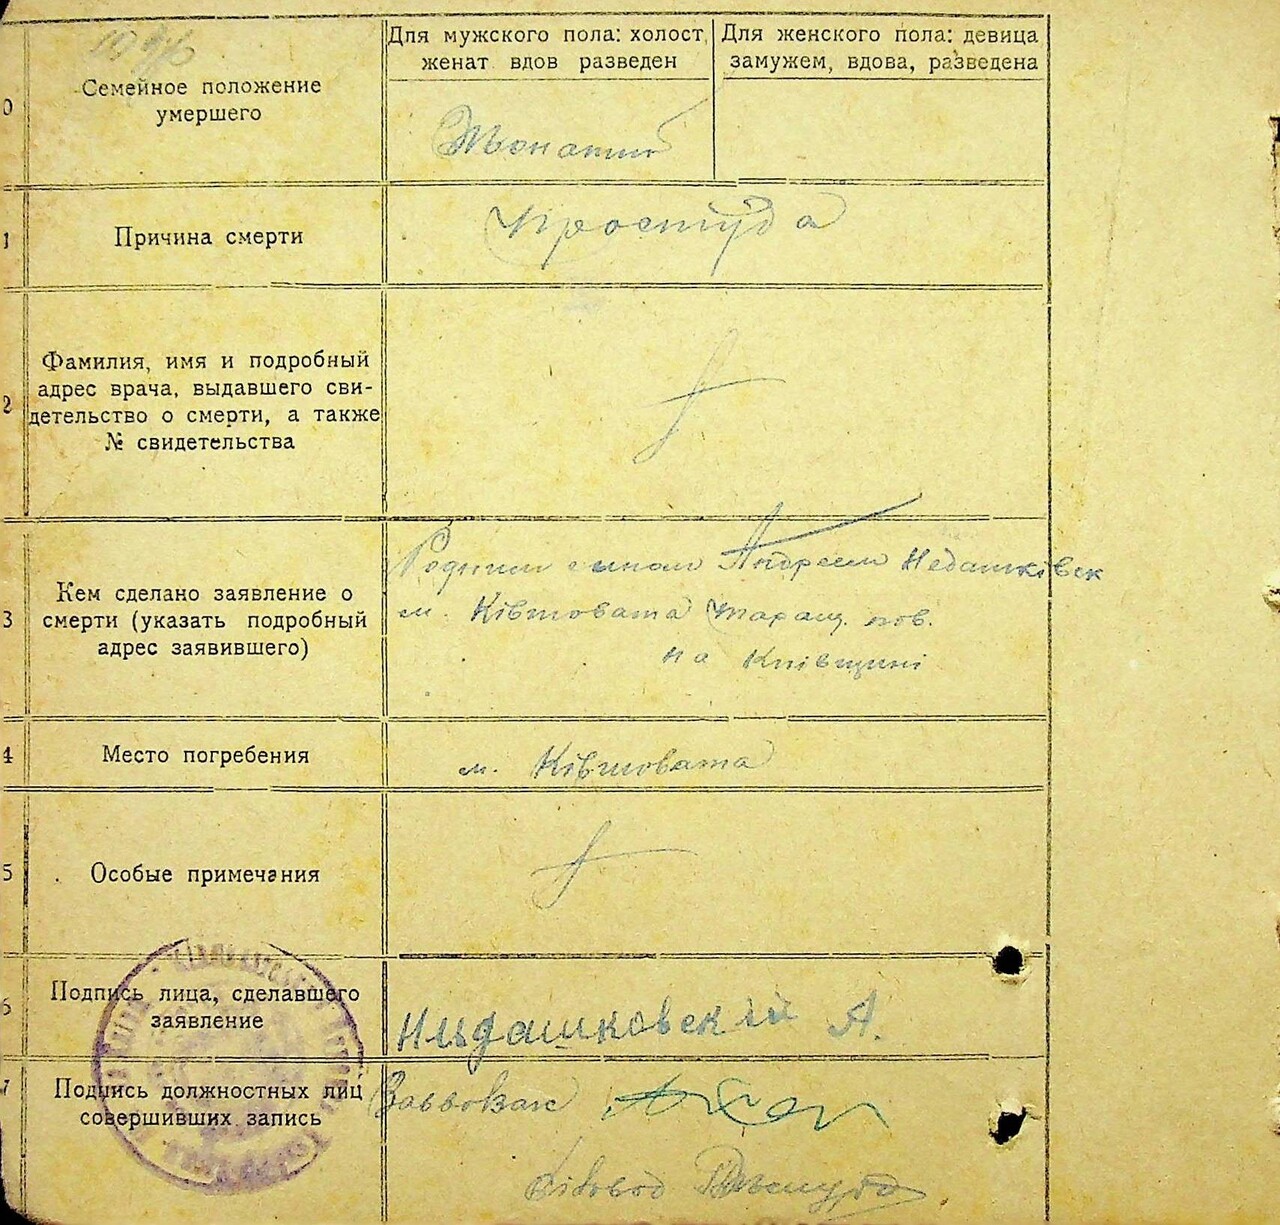 Для мужского пола: холост,
женат вдов разведен
Для женского пола: девица
замужем, вдова, разведена
0
Семейное положение
умершего
Жонатий
1
Причина смерти
Простуда
2
Фамилия, имя и подробный
адрес врача, выдавшего сви-
детельство о смерти, а также
№ свидетельства
3
Кем сделано заявление о
смерти (указать подробный
адрес заявившего)
Родним сином Андреем Недашківск
м. Ківшовата Таращ. пов.
на Київщині
4
Место погребения
м. Ківшовата
5
Особые примечания
6
Подпись лица, сделавшего
заявление
Нидашковский А.
7
Подпись должностных лиц
совершивших запись